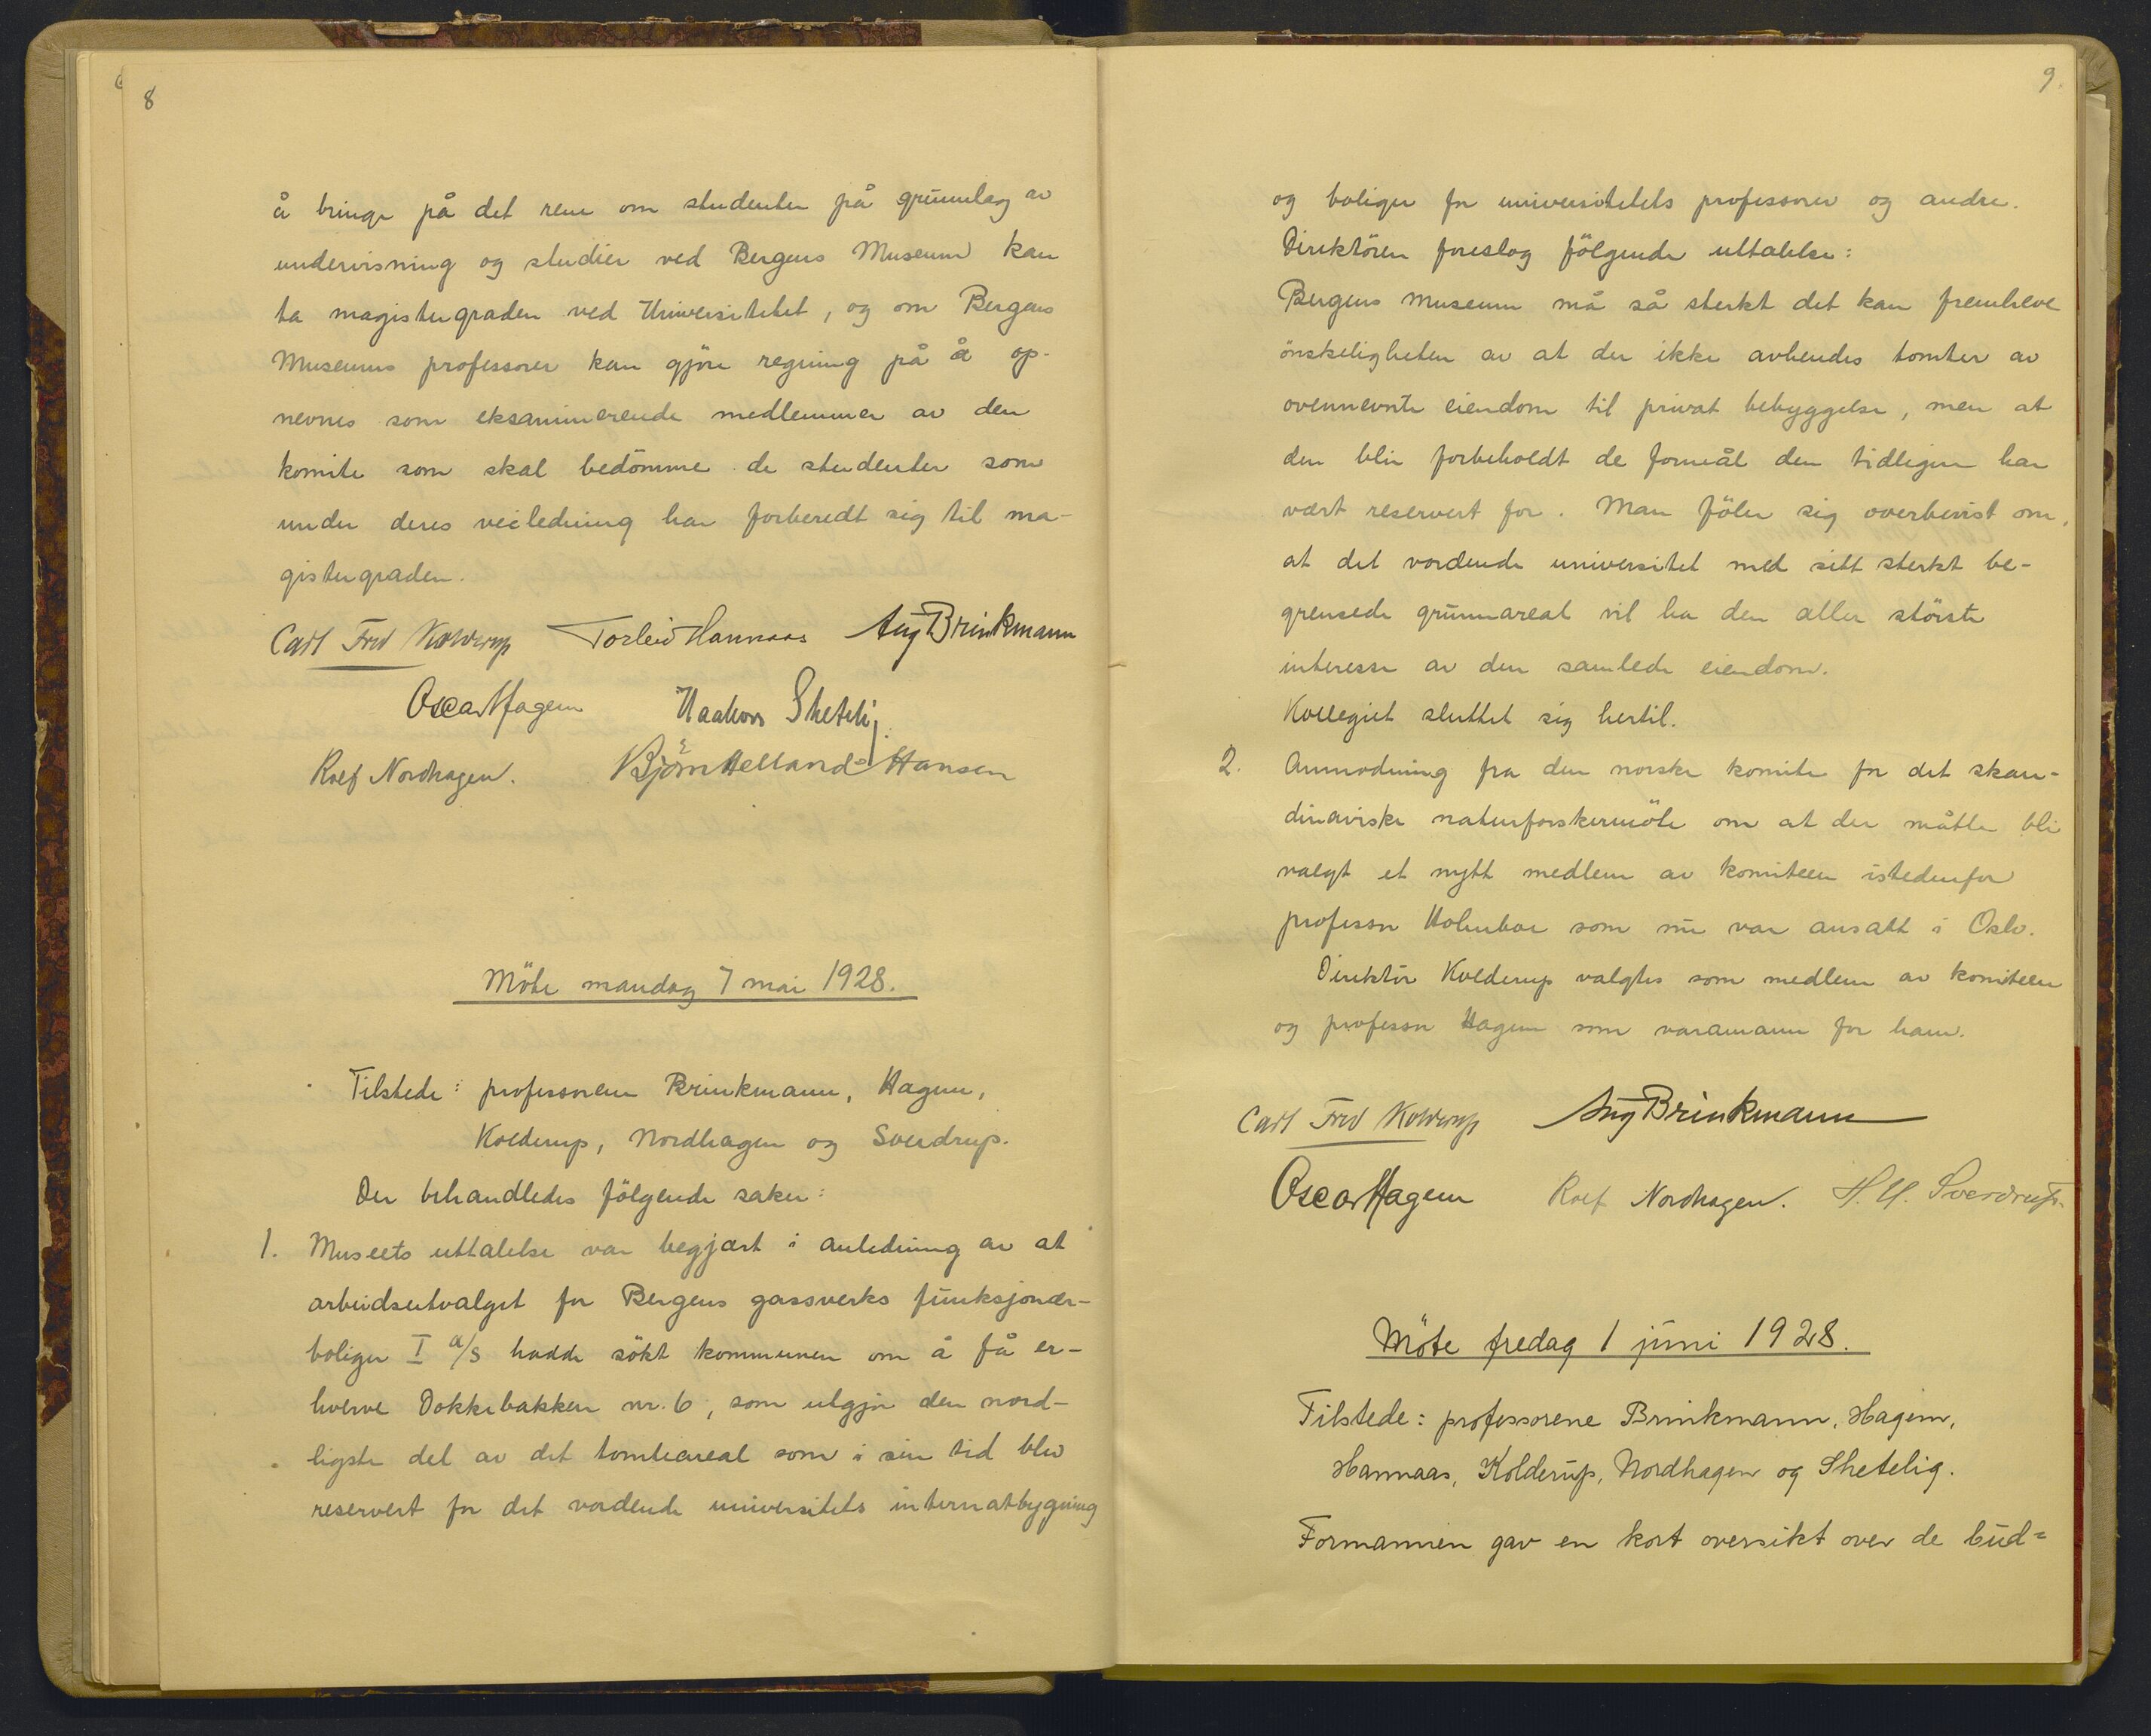 8
å bringe på det rene om studenter på grunnlag av
undervisning og studier ved Bergens Museum kan
ta magistergraden ved Universitetet, og om Bergens
Museums professorer kan gjöre regning på å op-
nevnes som eksaminerende medlemmer av den
komite som skal bedömme de studenter som
under deres veiledning har forberedt sig til ma-
gistergraden.
Carl Fred Kolderup Torleiv Hannaas Aug Brinkmann
Oscar Hagem Haakon Shetelig
Rolf Nordhagen. Björn Helland-Hansen
Möte mandag 7 mai 1928.
Tilstede: professorene Brinkmann, Hagem,
Kolderup, Nordhagen og Sverdrup.
Der behandledes fölgende saker:
1. Museets uttalelse var begjært i anledning av at
arbeidsutvalget for Bergens gassverks funksjonær-
boliger I a/s hadde sökt kommunen om å få er-
hverve Dokkebakken nr. 6, som utgjör den nord-
ligste del av det tomteareal som i sin tid blev
reservert for det vordende universitets internatbygning
9.
og boliger for universitetets professorer og andre.
Direktören foreslog fölgende uttalelse:
Bergens Museum må så sterkt det kan fremheve
önskeligheten av at der ikke avhendes tomter av
ovennevnte eiendom til privat bebyggelse, men at
den blir forbeholdt de formål den tidligere har
vært reservert for. Man föler sig overbevist om,
at det vordende universitet med sitt sterkt be-
grensede grunnareal vil ha den aller störste
interesse av den samlede eiendom.
Kollegiet sluttet sig hertil.
2. Anmodning fra den norske komite for det skan-
dinaviske naturforskermöte om at der måtte bli
valgt et nytt medlem av komiteen istedenfor
professor Holmboe som nu var ansatt i Oslo.
Direktör Kolderup valgtes som medlem av komiteen
og professor Hagem som varamann for ham.
Carl Fred Kolderup Aug Brinkmann
Oscar Hagem Rolf Nordhagen. H. U. Sverdrup.
Möte fredag 1 juni 1928.
Tilstede: professorene Brinkmann, Hagem,
Hannaas, Kolderup, Nordhagen og Shetelig.
Formannen gav en kort oversikt over de bud=